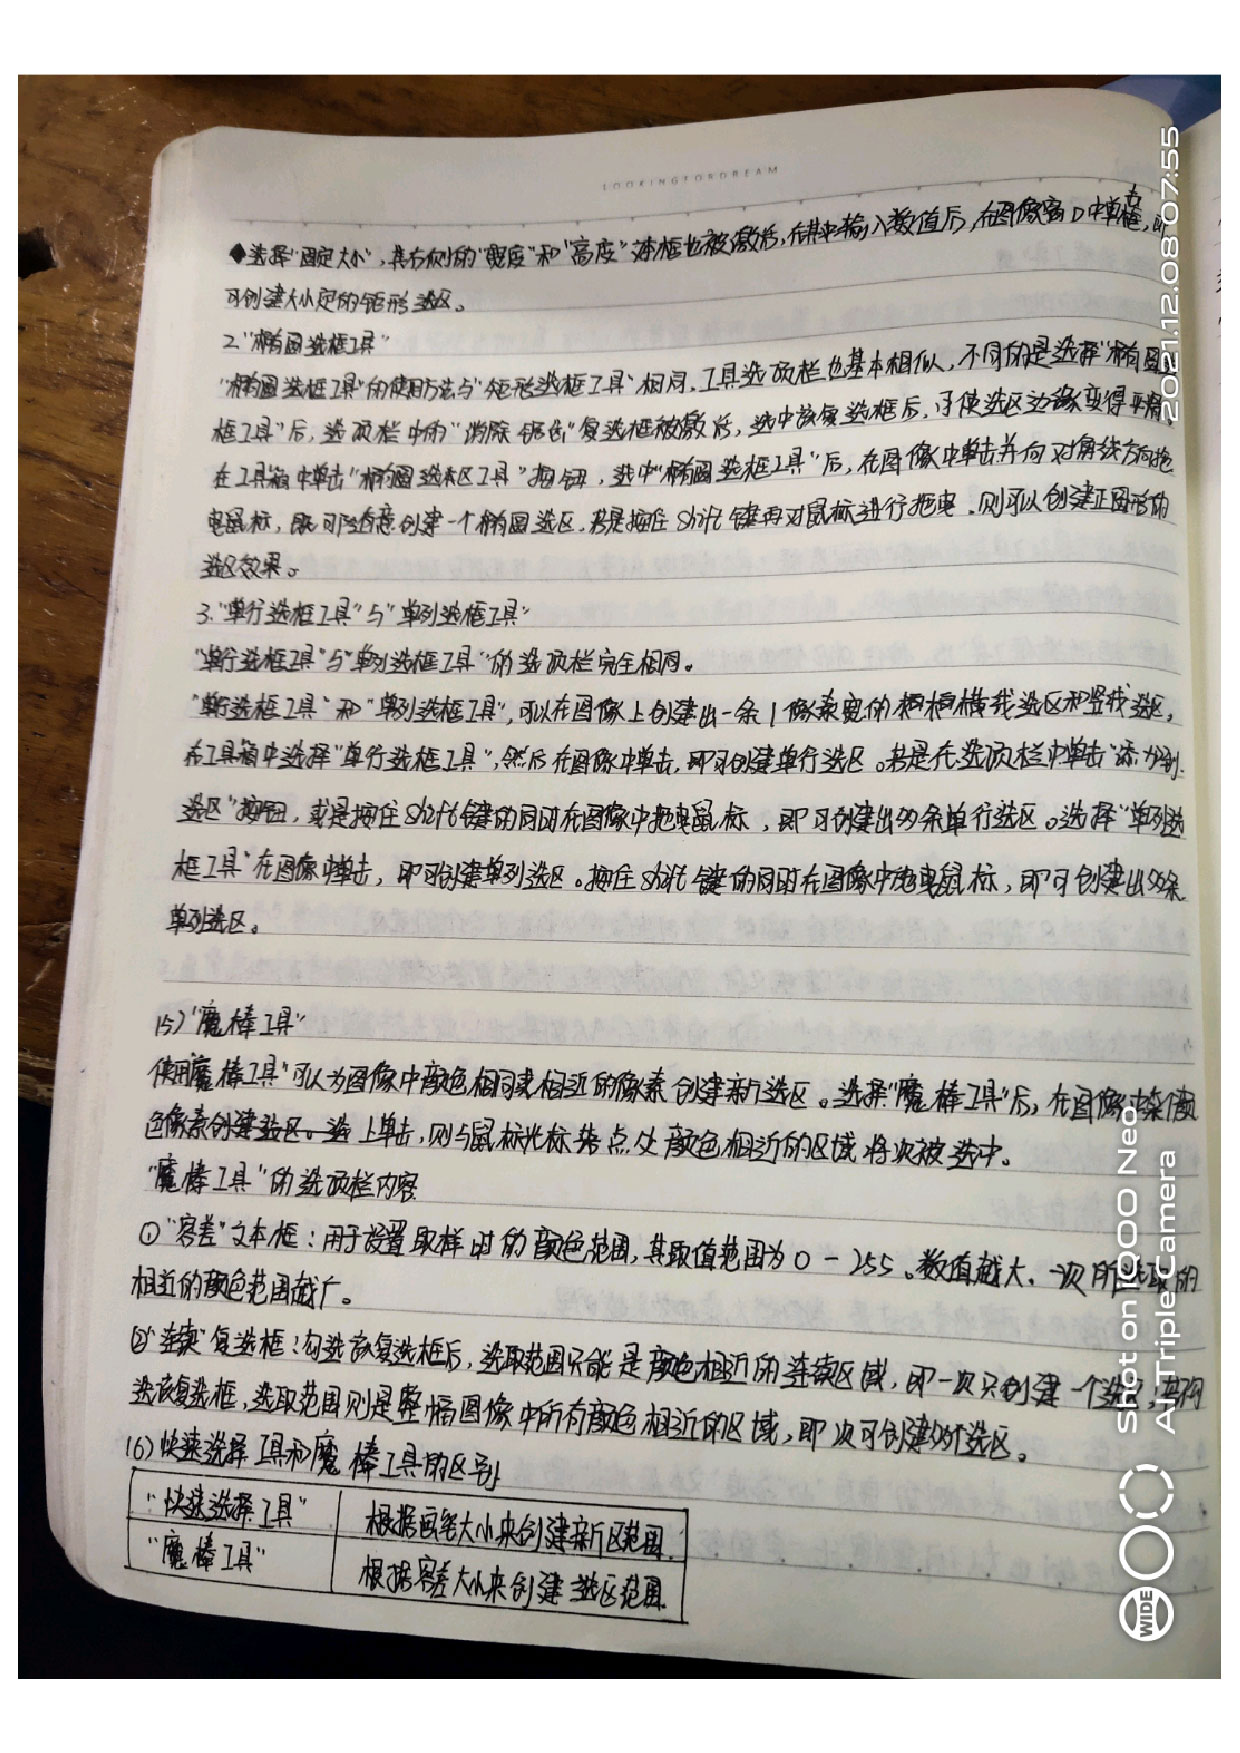 LOOKINGFORDREAM
◆选择"固定大小",其右侧的"宽度"和"高度"文本框也被激活,在其中输入数值后,在图像窗口中单击,即
可创建大小定的矩形选区。
2."椭圆选框工具"
"椭圆选框工具"的使用方法与"矩形选框工具"相同,工具选项栏也基本相似,不同的是选择"椭圆选
框工具"后,选项栏中的"消除锯齿"复选框被激活,选中该复选框后,可使选区边缘变得平滑。
在工具箱中单击"椭圆选框工具"按钮,选中"椭圆选框工具"后,在图像中单击并向对角线方向拖
曳鼠标,既可随意创建一个椭圆选区,若是按住Shift键再对鼠标进行拖曳,则可以创建正圆形的
选区效果。
3."单行选框工具"与"单列选框工具"
"单行选框工具"与"单列选框工具"的选项栏完全相同。
"单行选框工具"和"单列选框工具",可以在图像上创建出一条1像素宽的横线选区和竖线选区,
在工具箱中选择"单行选框工具",然后在图像中单击,即可创建单行选区。若是在选项栏中单击"添加到
选区"按钮,或是按住Shift键的同时在图像中拖曳鼠标,即可创建出多条单行选区。选择"单列选
框工具"在图像中单击,即可创建单列选区。按住Shift键的同时在图像中拖曳鼠标,即可创建出多条
单列选区。
15)"魔棒工具"
使用魔棒工具"可以为图像中颜色相同或相近的像素创建新选区。选择"魔棒工具"后,在图像中某个颜
色像素上单击,则与鼠标光标落点处颜色相近的区域将次被选中。
"魔棒工具"的选项栏内容
①"容差"文本框:用于设置取样时的颜色范围,其取值范围为0-255。数值越大,一次所选取的
相近的颜色范围越广。
②"连续"复选框:勾选该复选框后,选取范围只能是颜色相近的连续区域,即一次只创建一个选区;若不勾
选该复选框,选取范围则是整幅图像中所有颜色相近的区域,即次可创建多个选区。
16)快速选择工具和魔棒工具的区别
"快速选择工具" 根据画笔大小来创建新区范围.
"魔棒工具" 根据容差大小来创建选区范围.
2021.12.08 07:55
Shot on iQOO Neo
AI Triple Camera
WIDE